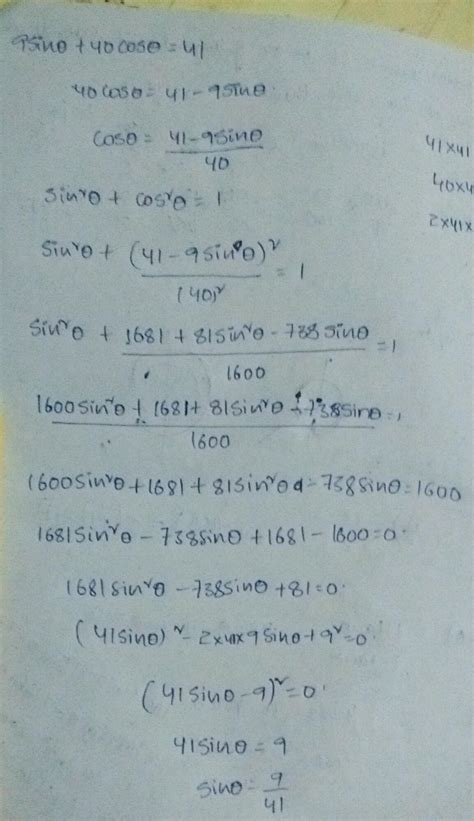 9sinθ + 40cosθ = 41
40cosθ = 41 - 9sinθ
cosθ = (41 - 9sinθ)/40
41×41
40×4
2×41×
sin²θ + cos²θ = 1
sin²θ + (41 - 9sinθ)²/(40)² = 1
sin²θ + (1681 + 81sin²θ - 738sinθ)/1600 = 1
(1600sin²θ + 1681 + 81sin²θ - 738sinθ)/1600 = 1
1600sin²θ + 1681 + 81sin²θ - 738sinθ = 1600
1681sin²θ - 738sinθ + 1681 - 1600 = 0
1681sin²θ - 738sinθ + 81 = 0
(41sinθ)² - 2×41×9sinθ + 9² = 0
(41sinθ - 9)² = 0
41sinθ = 9
sinθ = 9/41